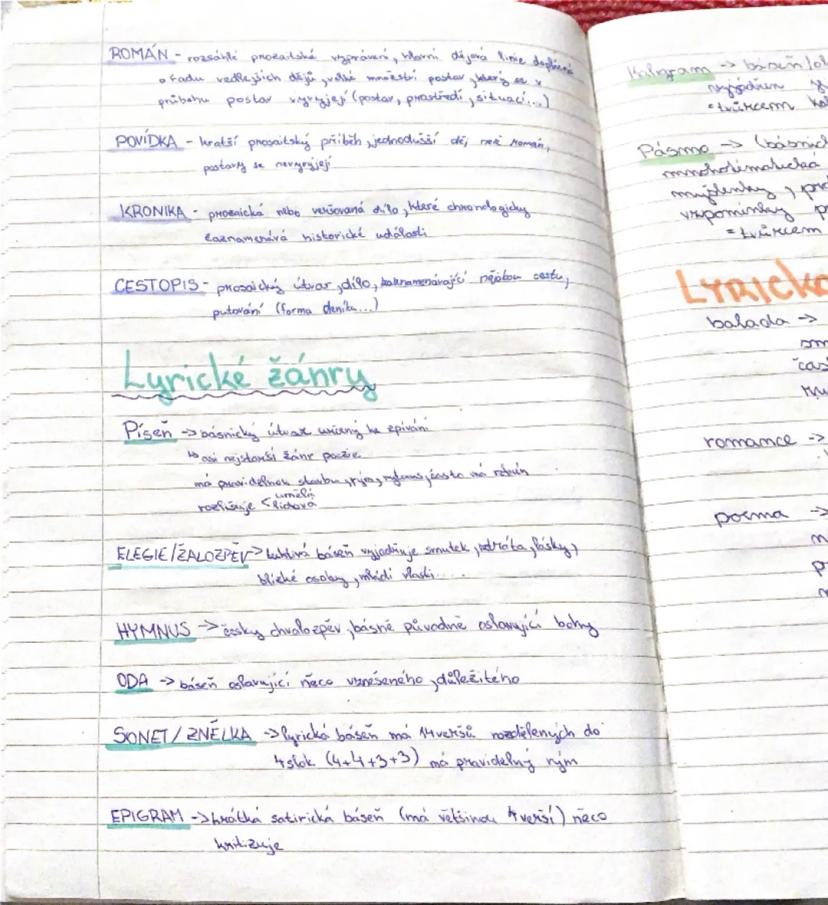 ROMÁN - rozsáhlé prozaitské vyprávění, hlavní dějová linie doplněná
o řadu vedlejších dějů, velké množství postav, který se v
průběhu postav vyvýjejí (postav, prostředí, situací...)
POVÍDKA - kratší prosaitský příběh, jednodušší děj než román,
postavy se nevyvýjejí
KRONIKA - prozaická nebo veršovaná dílo, které chronologicky
zaznamenává historické události
CESTOPIS - prosaický útvar, dílo, zaznamenávající nějakou cestu,
putování (forma deníku...)
Lyrické žánry
Píseň -> básnický útvar určený ke zpívání
↳ asi nejstarší žánr poezie
má pravidelnou stavbu, rým, rytmus, často má refrén
rozlišuje < umělá
lidová
ELEGIE/ŽALOZPĚV -> báseň vyjadřuje smutek, ztráta, lásky,
blízké osoby, mládí vlasti....
HYMNUS -> česky chvalozpěv, básně původně oslavující bohy
ODA -> báseň oslavující něco vznešeného, důležitého
SONET/ZNĚLKA -> lyrická báseň má 14 veršů rozdělených do
4 slok (4+4+3+3) má pravidelný rým
EPIGRAM -> krátká satirická báseň (má většinou 4 verší) něco
kritizuje
Kaligram -> báseň/o
vyjádřen
= tvůrcem
Pásmo -> (básnic
mnohotématická
myšlenky, pro
vzpomínky p
= tvůrcem
Lyricko
balada ->
sm
čas
romance ->
poema ->